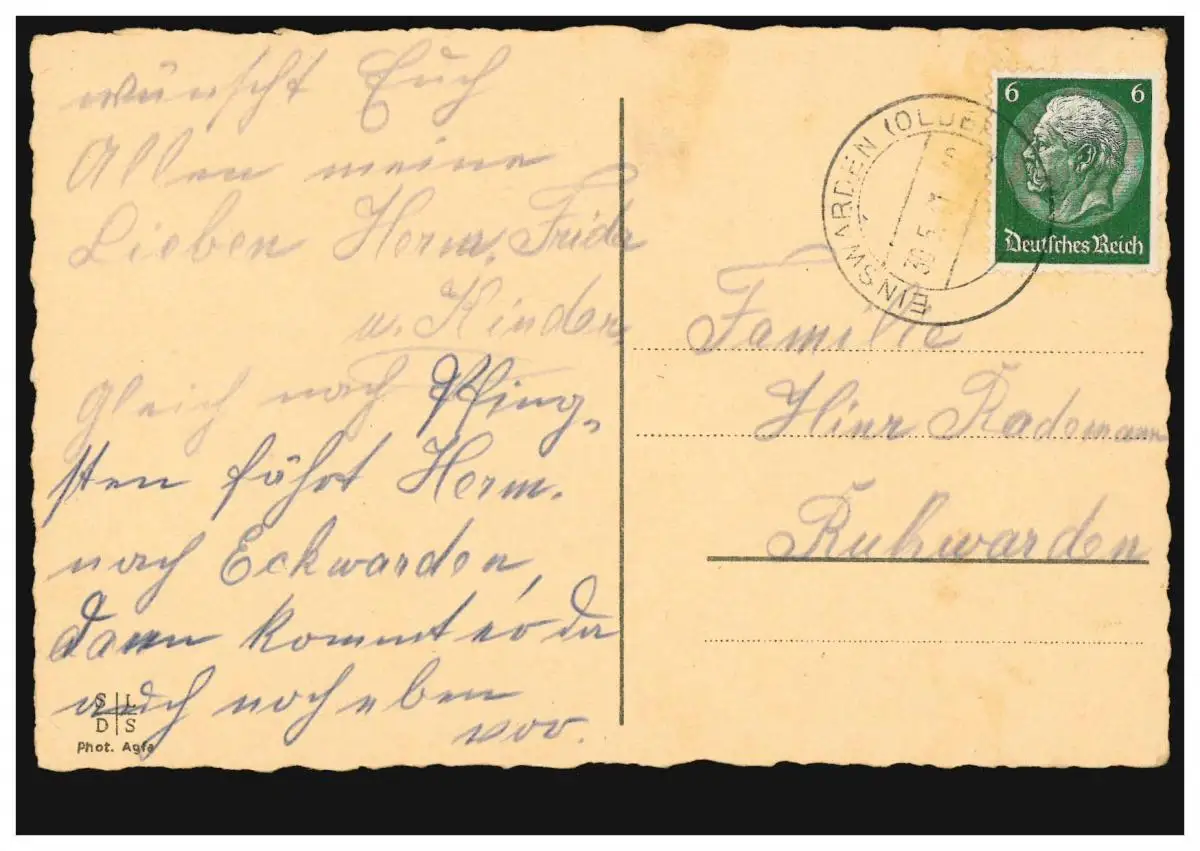 wünscht Euch
Allen meine
Lieben Herm, Frida
u. Kinder,
gleich nach Pfing-
sten fährt Herm.
nach Eckwarden,
dann kommt er da
auch noch eben
vor.
S L
D S
Phot. Agfa
EINSWARDEN (OLDB
30.5.
6 6
Deutsches Reich
Familie
Hinr Rademann
Ruhwarden